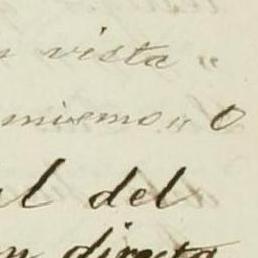 vista "
mismo " O
al del
n directa